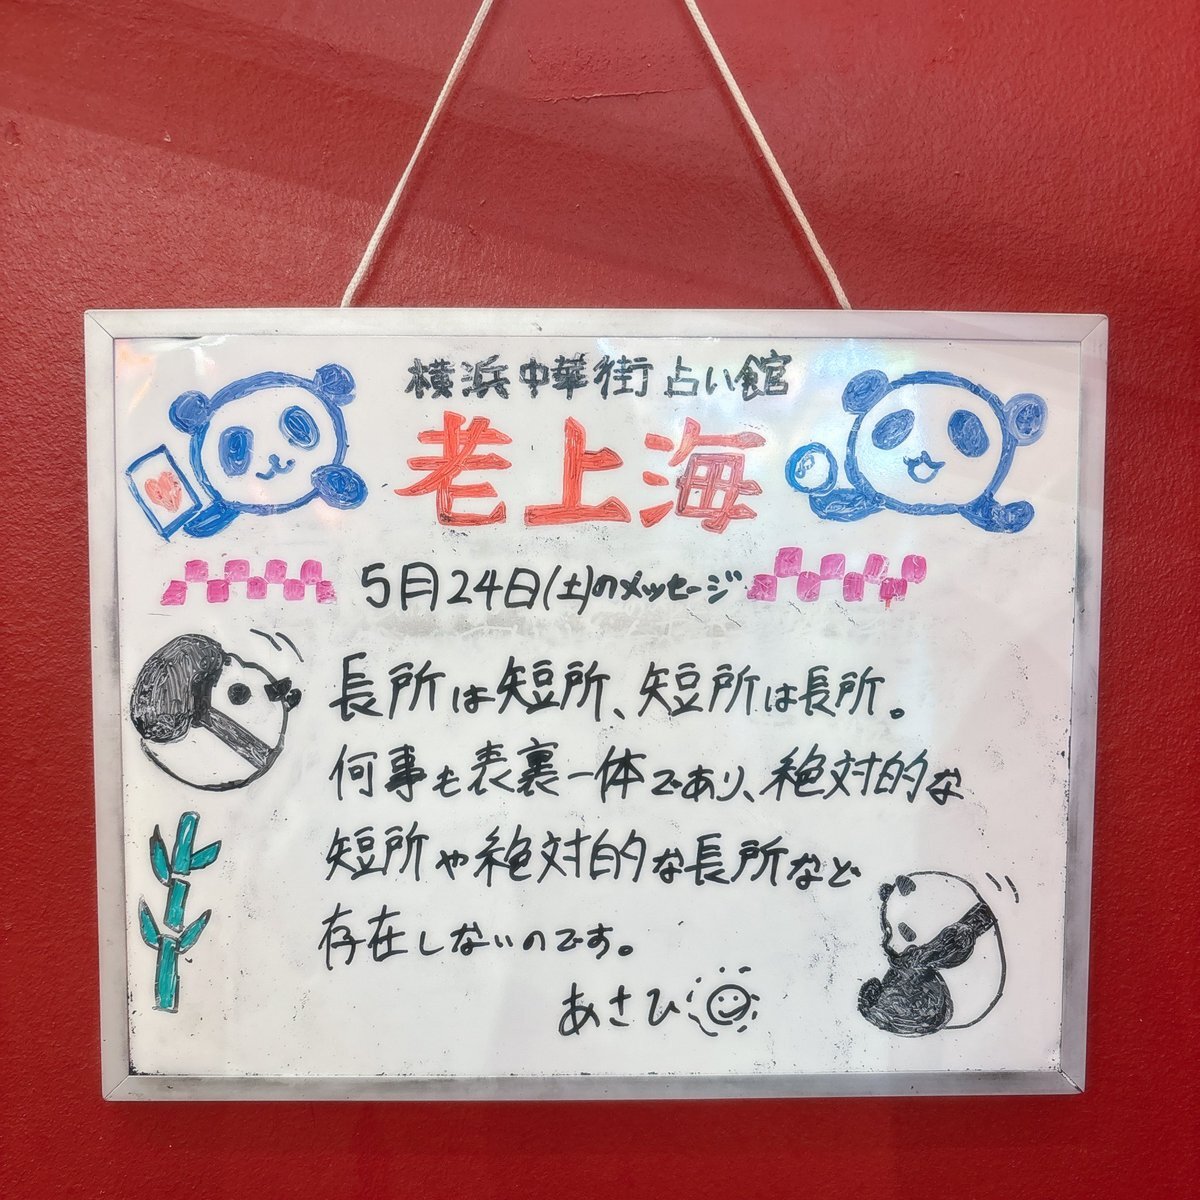 横浜中華街占い館
老上海
5月24日(土)のメッセージ
長所は短所、短所は長所。
何事も表裏一体であり、絶対的な
短所や絶対的な長所など
存在しないのです。
あさひ